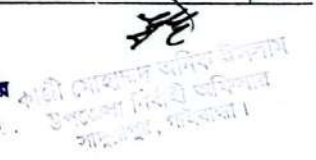 কাজী মোহাম্মদ অনিক ইসলাম
উপজেলা নির্বাহী অফিসার
সাদুল্লাপুর, গাইবান্ধা।